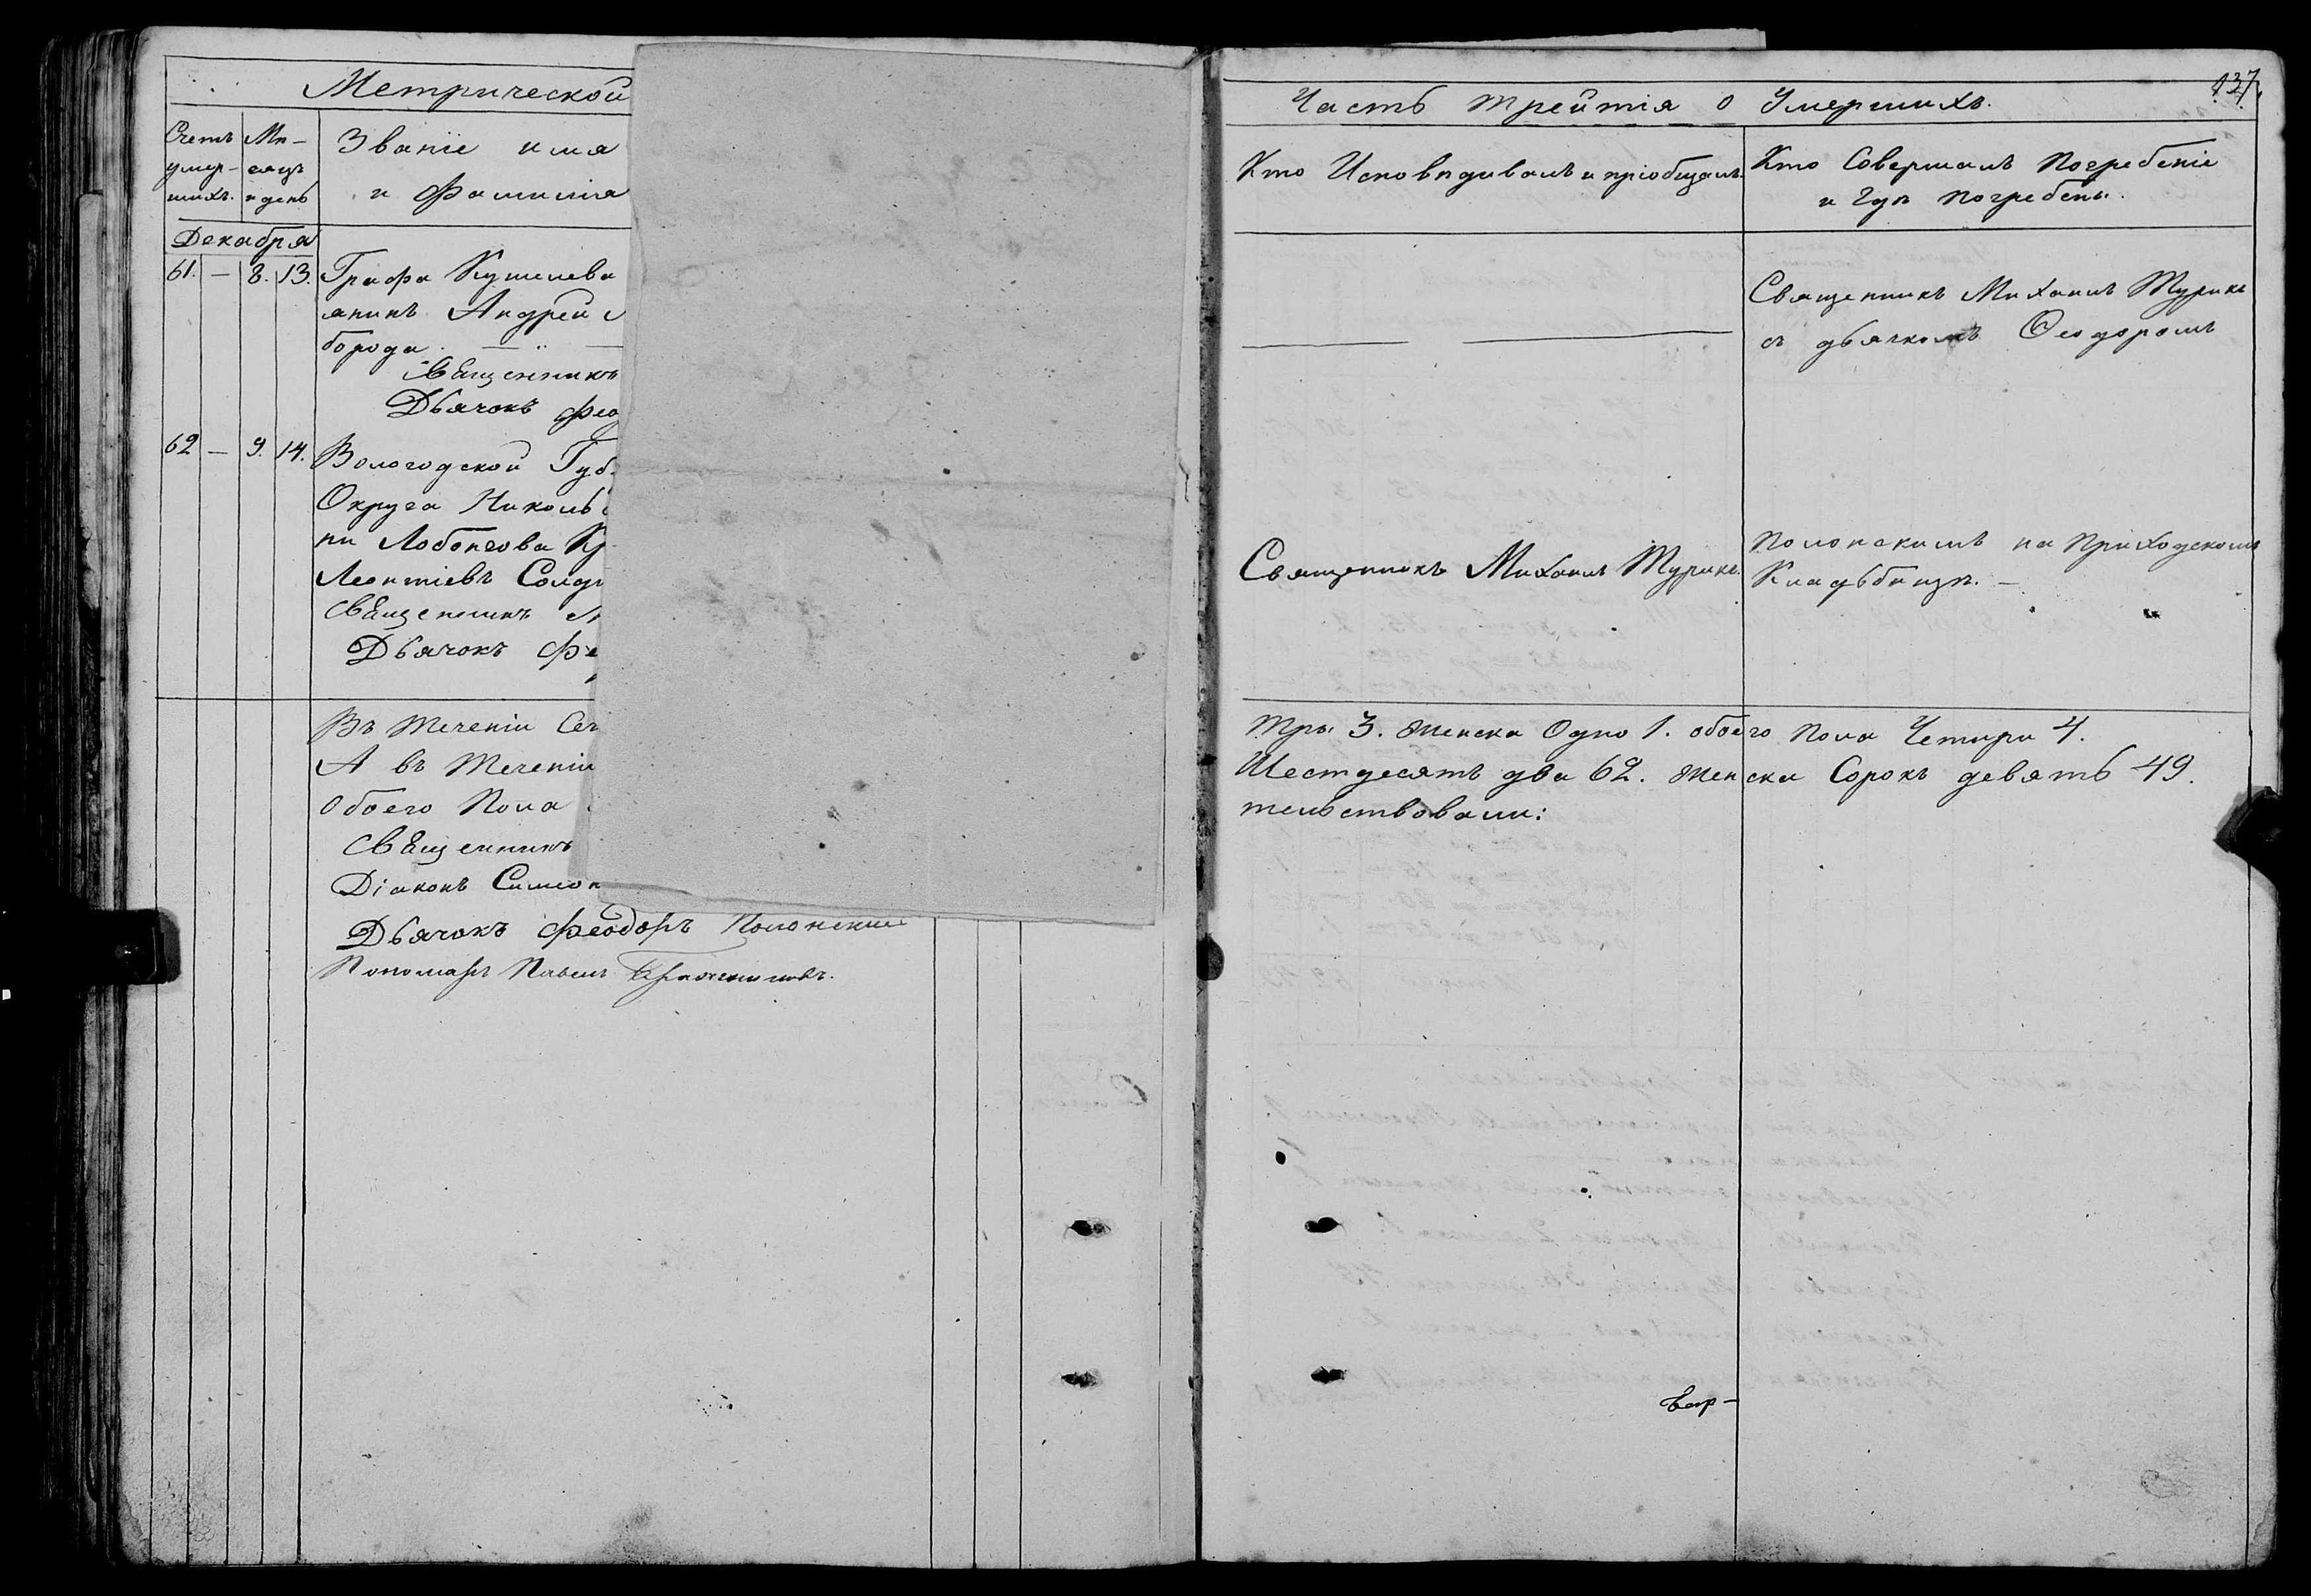 Метрической
Счетъ умер-шихъ.
Мѣ-сяцъ и день
Званіе имя
и Фамилія
Декабря
61. — 8. 13. Графа Кушелева
янинъ Андрей
борода.
Священникъ
Дьячокъ Фео
62 — 9. 14. Вологодской Губ.
Округа Николь
ни Кр
Леонтіевъ Солд
Священникъ
Дьячокъ Фе
Въ теченіи Сег
А въ теченіи
Обоего Пола
Священникъ
Діаконъ Симеон
Дьячокъ Феодоръ Полонскій
Пономарь Павелъ
137
Часть трейтія о Умершихъ.
Кто Исповѣдивалъ и пріобщалъ.
Кто Совершалъ Погребеніе
и Гдѣ погребены.
Священникъ Михаилъ Турике
съ дьячкомъ Ѳеодоромъ
Священникъ Михаилъ Турике.
Полонскимъ на Приходскомъ
Кладьбищѣ. —
Тры 3. женска Одно 1. обоего пола Четыри 4.
Шестдесятъ два 62. женска Сорокъ девять 49.
тельствовали: